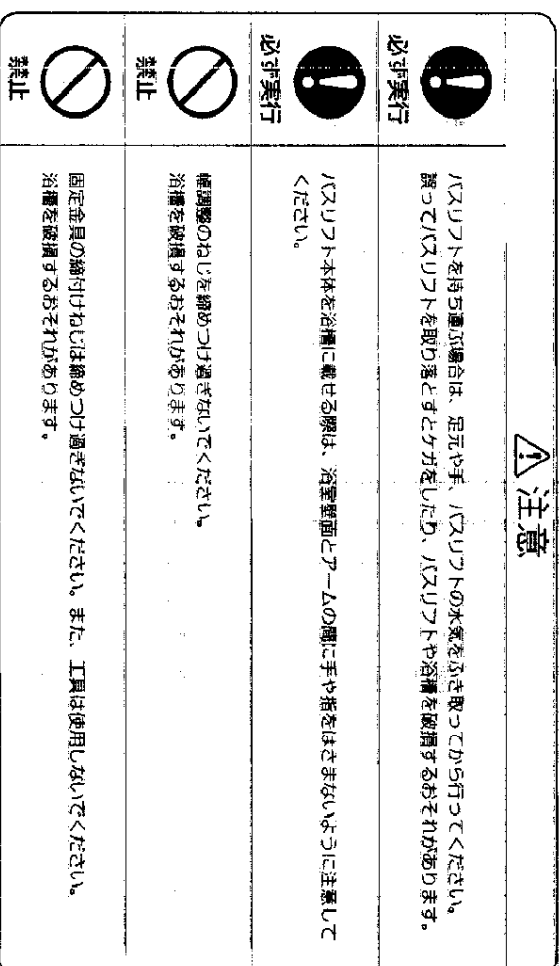 注意
必ず実行
バスリフトを持ち運ぶ場合は、足元や手、バスリフトの水気をふき取ってから行ってください。
誤ってバスリフトを取り落とすとケガをしたり、バスリフトや浴槽を破損するおそれがあります。
必ず実行
バスリフト本体を浴槽に載せる際は、浴室壁面とアームの間に手や指をはさまないように注意して
ください。
禁止
幅調整のねじを締めつけ過ぎないでください。
浴槽を破損するおそれがあります。
禁止
固定金具の締付けねじは締めつけ過ぎないでください。また、工具は使用しないでください。
浴槽を破損するおそれがあります。